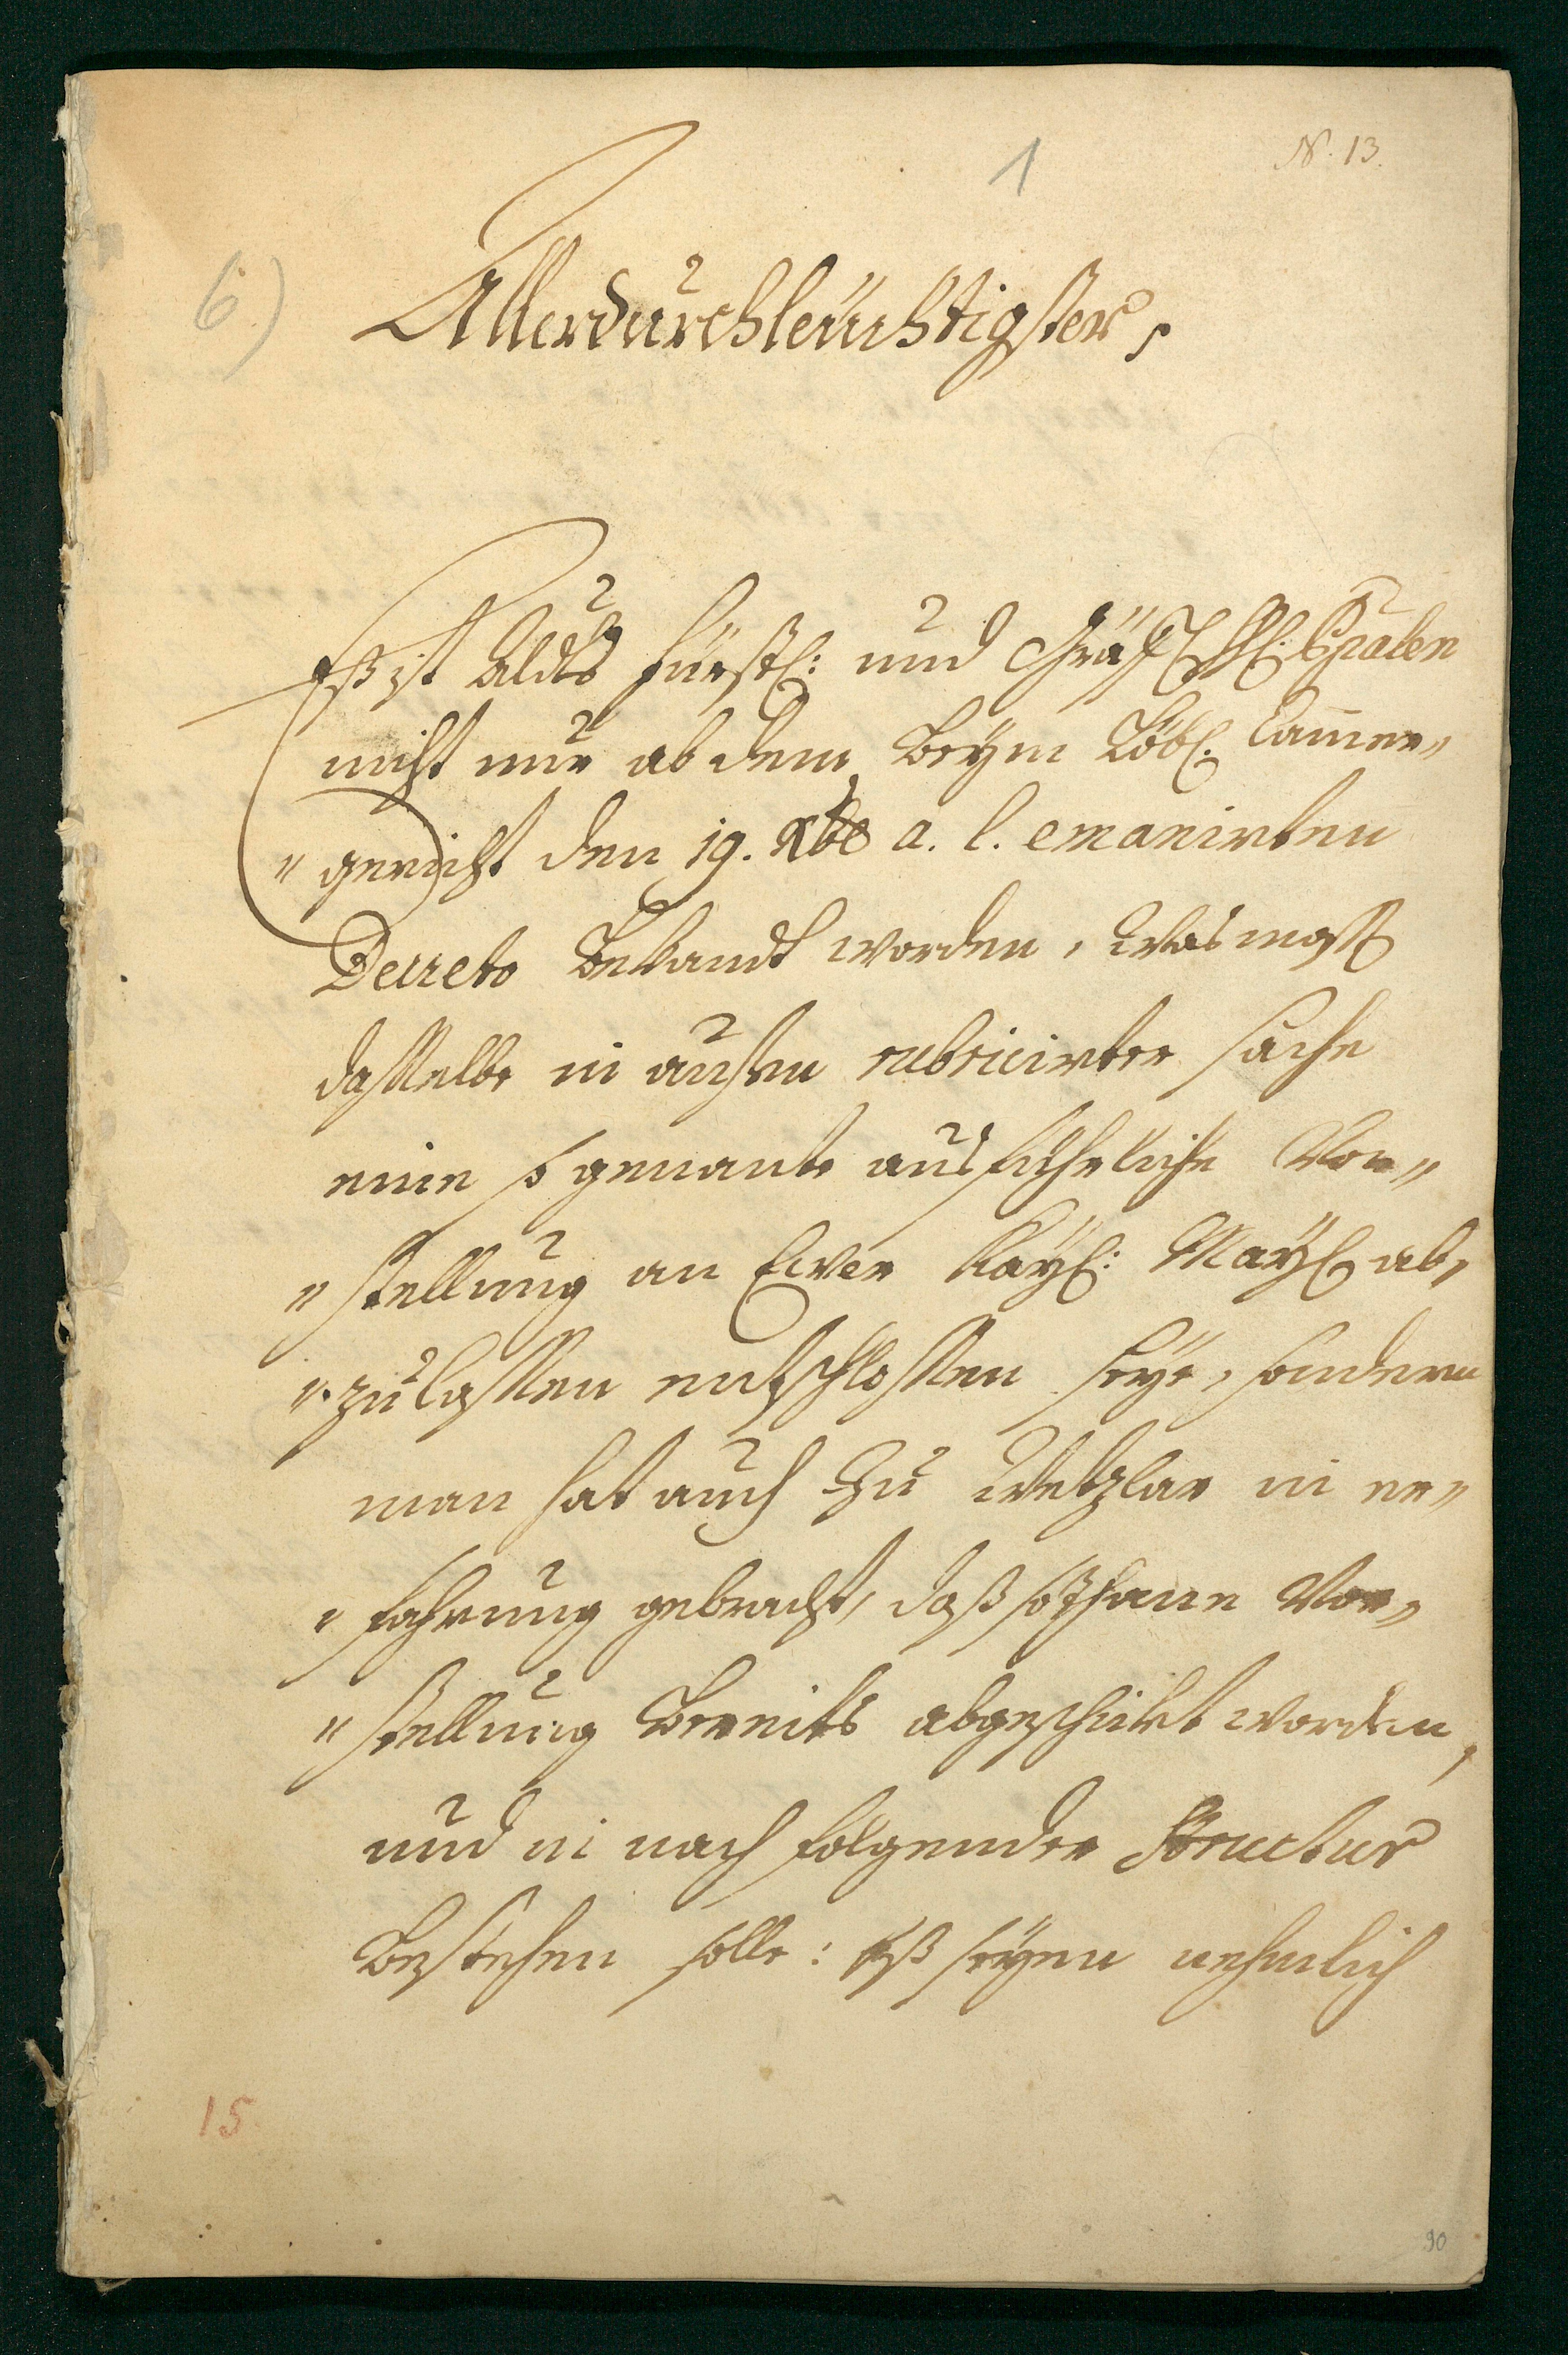 1
N. 13.
6.)
Allerdurchleuchtigster,
Eß ist allds fürstl: und Gräfl
nicht nur ab dem beym Löbl. Cammer„
„gericht den 19. Xbr a. l. emanirten
Decreto bekandt worden, was maß
dasselbe in außen rubricirter sache
eine so genante ausführliche Vor„
„stellung an Ewer Kayl: Mayt ab„
„zulassen entschlossen seye, sondern
man hat auch zu Wetzlar in er„
„fahrung gebracht, daß sothane Vor„
„stellung bereits abgeschickt worden,
und in nach folgender Structur
bestehen solle: Eß seyen nehmlich
15.
90